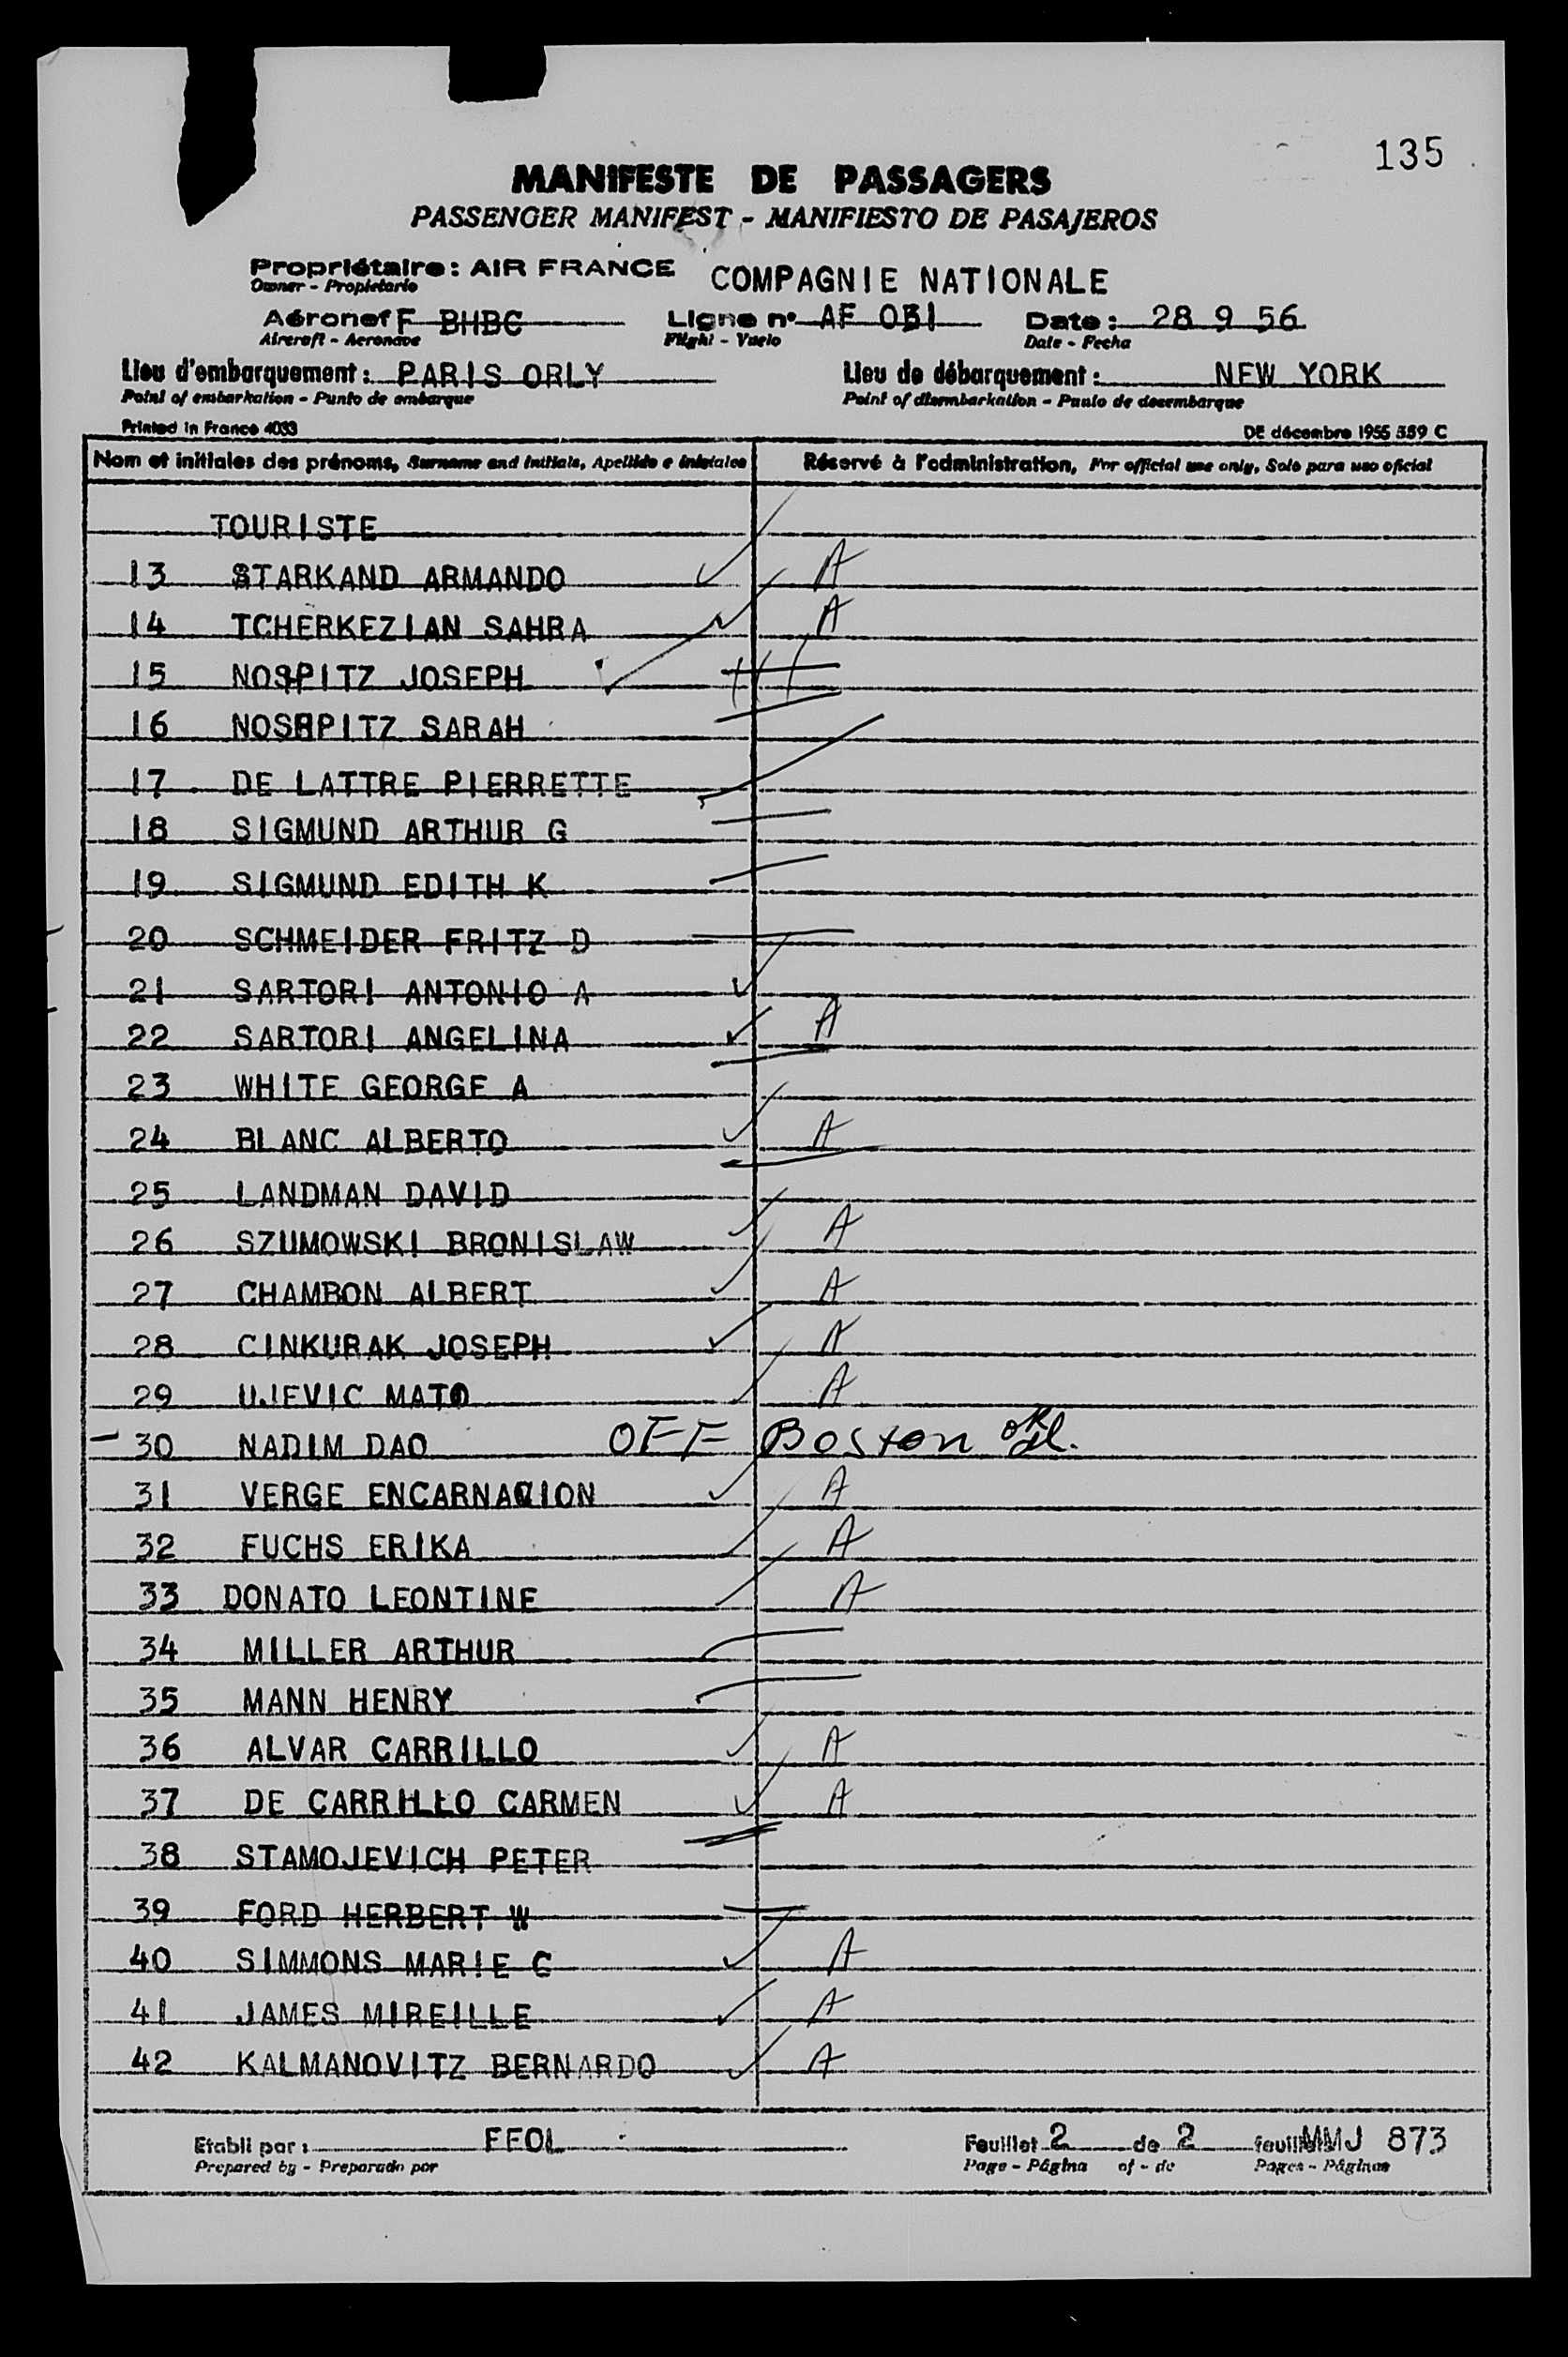 135
MANIFESTE DE PASSAGERS
PASSENGER MANIFEST - MANIFIESTO DE PASAJEROS
Propriétaire : AIR FRANCE COMPAGNIE NATIONALE
Owner - Propietario
Aéronef F BHBC Ligne n° AF 031 Date : 28 9 56
Aircraft - Aeronave Flight - Vuelo Date - Fecha
Lieu d'embarquement : PARIS ORLY Lieu de débarquement : NEW YORK
Point of embarkation - Punto de embarque Point of disembarkation - Punto de desembarque
Printed in France 4033 DE décembre 1955 559 C
Nom et initiales des prénoms, Surname and initials, Apellido e iniciales Réservé à l'administration, For official use only, Solo para uso oficial
TOURISTE
13 STARKAND ARMANDO A
14 TCHERKEZIAN SAHRA A
15 NOSPITZ JOSEPH
16 NOSHPITZ SARAH
17 DE LATTRE PIERRETTE
18 SIGMUND ARTHUR G
19 SIGMUND EDITH K
20 SCHMEIDER FRITZ D
21 SARTORI ANTONIO A
22 SARTORI ANGELINA A
23 WHITE GEORGE A
24 BLANC ALBERTO A
25 LANDMAN DAVID
26 SZUMOWSKI BRONISLAW A
27 CHAMBON ALBERT A
28 CINKURAK JOSEPH A
29 UJEVIC MATO A
30 NADIM DAO OFF Boston
31 VERGE ENCARNACION A
32 FUCHS ERIKA A
33 DONATO LEONTINE A
34 MILLER ARTHUR
35 MANN HENRY
36 ALVAR CARRILLO A
37 DE CARRILLO CARMEN A
38 STAMOJEVICH PETER
39 FORD HERBERT W
40 SIMMONS MARIE C A
41 JAMES MIREILLE A
42 KALMANOVITZ BERNARDO A
Etabli par : FFOL Feuillet 2 de 2 feuillets MMJ 873
Prepared by - Preparado por Page - Página of - de Pages - Páginas